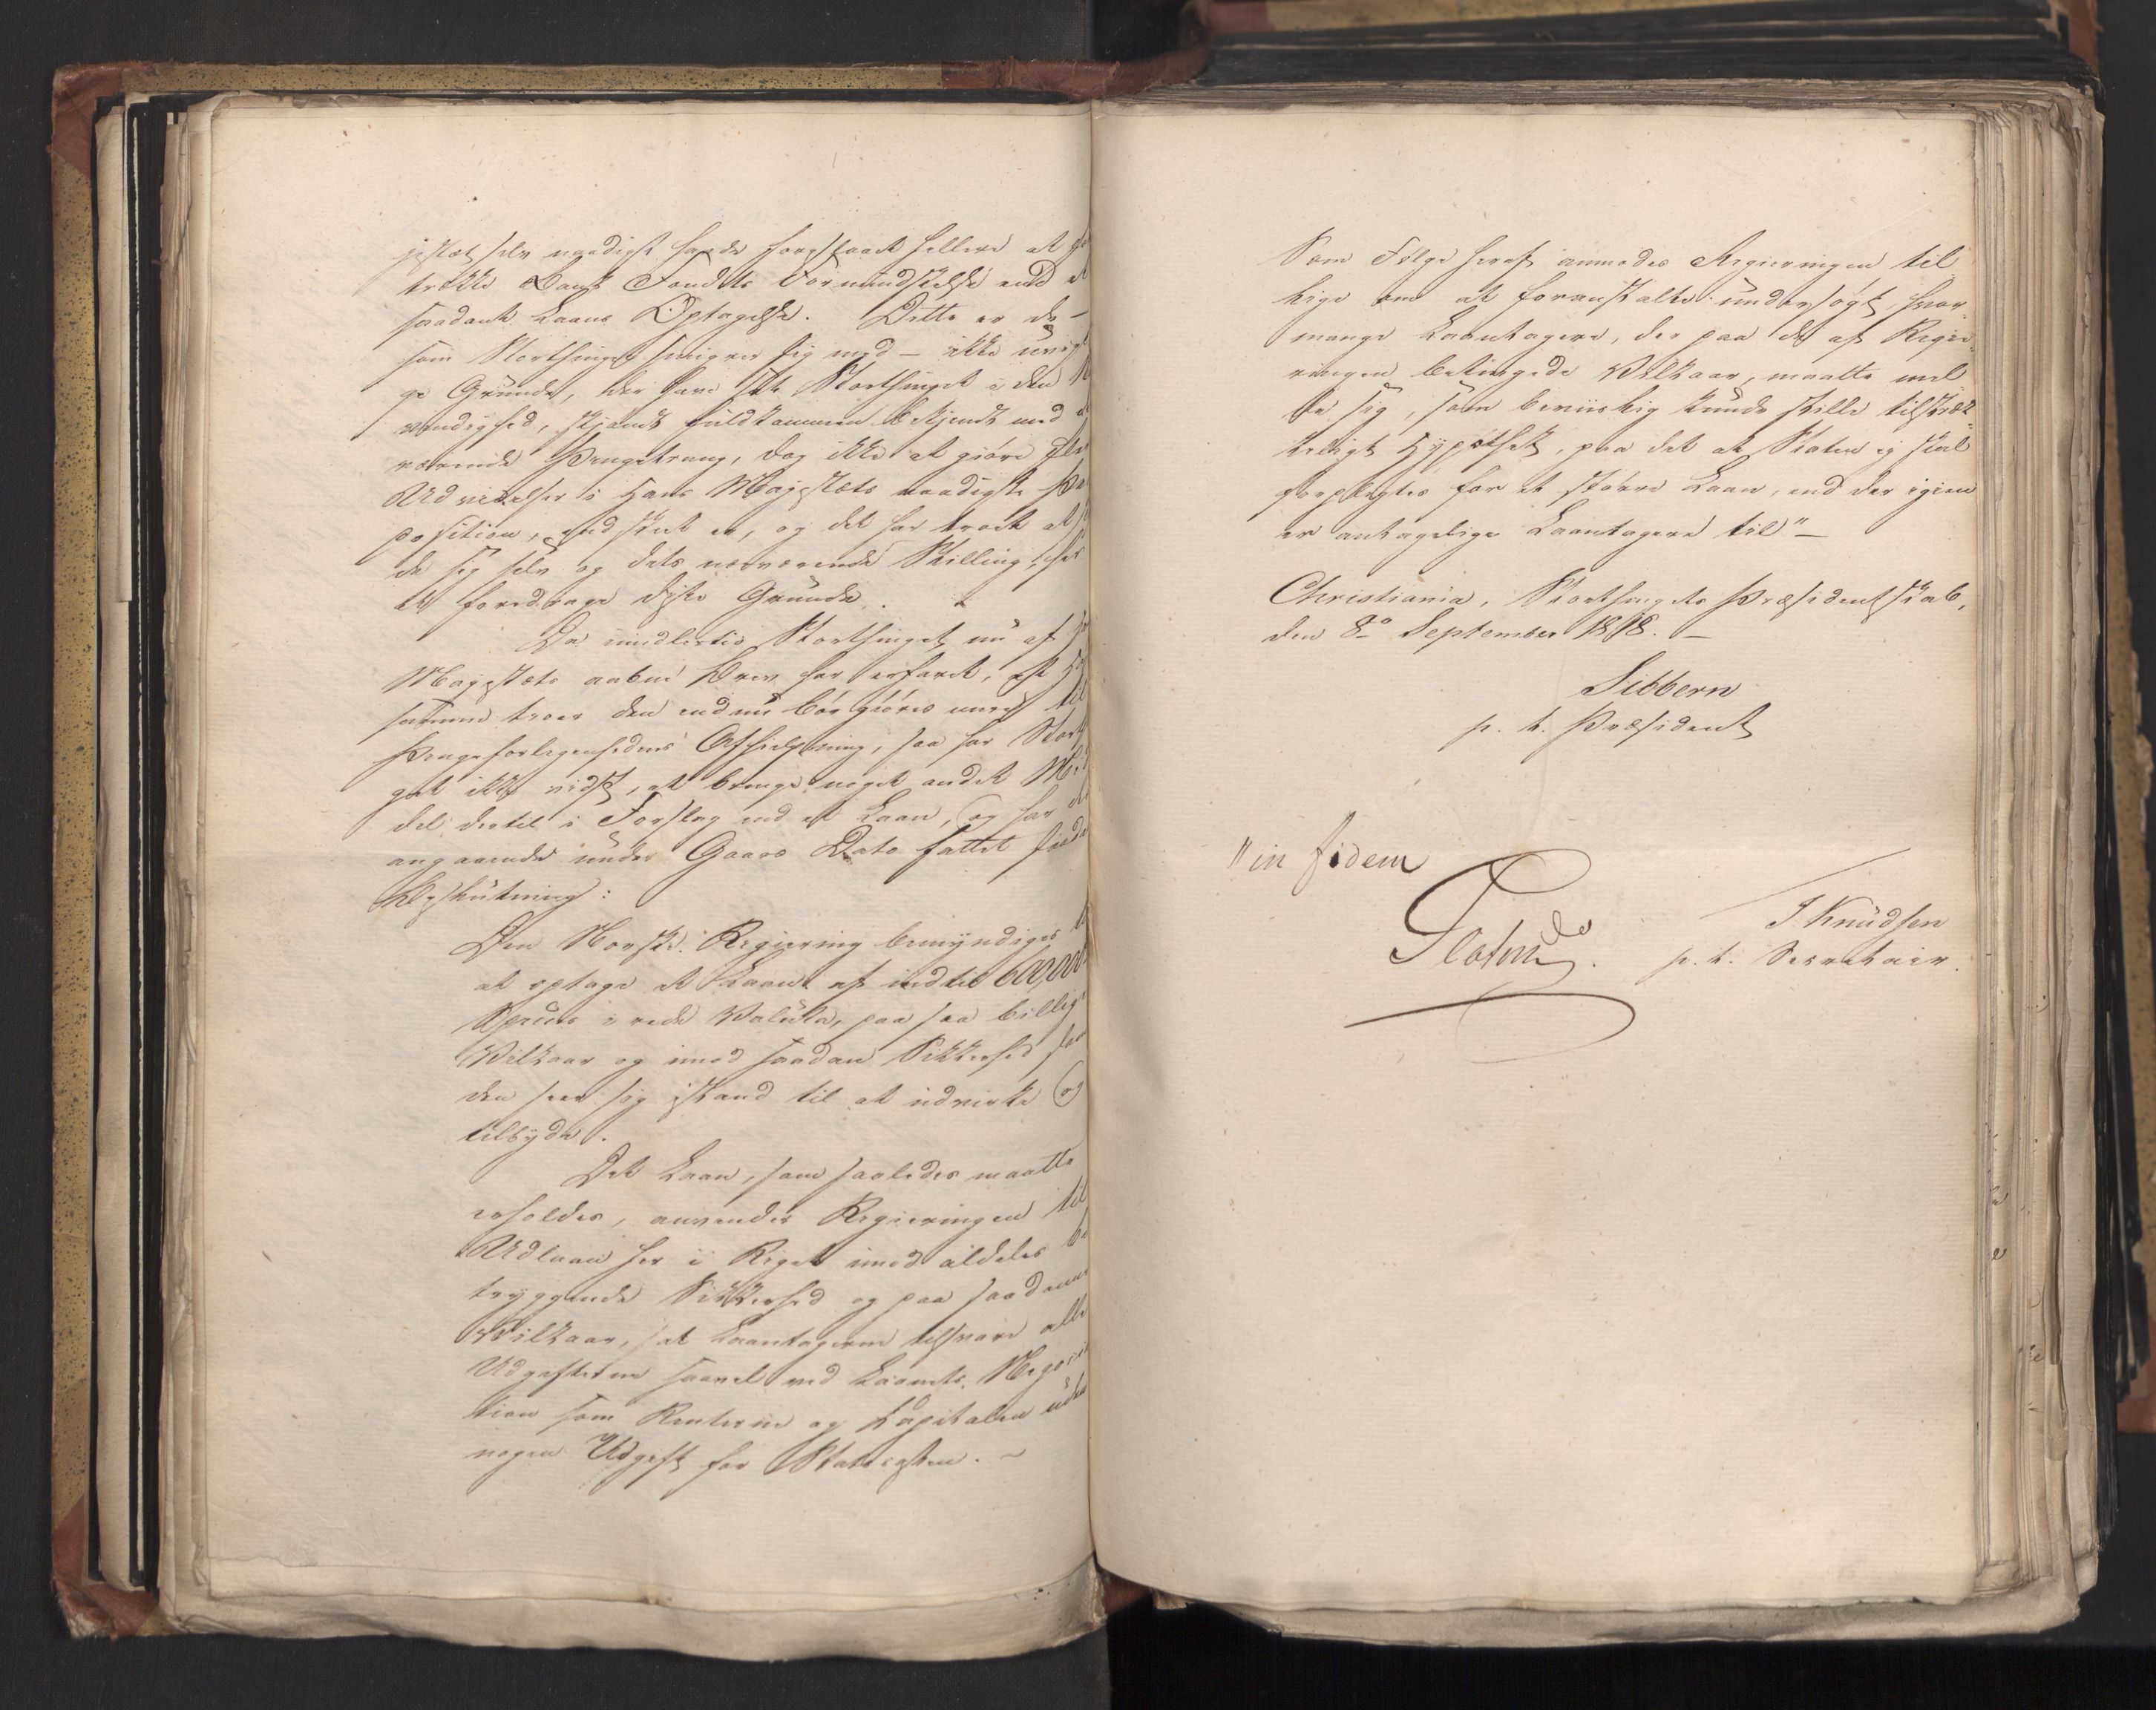 jestæt selv naadigst havde foreslaaet hellere at fo
trække Bank Fondets Formindskelse end et
saadant Laans Optagelse. Dette er de –
som Storthinget smigrer sig med – ikke uvigt
ge Grunde, der have sat Storthinget i den No
vendighed, skjøndt fuldkommen bekjendt med
værende Pengetrang, dog ikke at giøre flere
Udvidelser i Hans Majestæts naadigste Pro
position, end skeet er, og det har troet at
de sig selv og dets nærværende Stilling
at foredrage disse Grunde.
Da imidlertid Storthinget nu af
Majestæts aabne Brev har erfaret, at
samme troer den endnu bør giøres meget til
Pengeforlegenhedens Afhielpning, saa har Stort
get ikke vidst, at bringe noget andet Mid
del dertil i Forslag end et Laan, og har de
angaaende under Gaars Dato fattet saada
Beslutning:
Den Norske Regjering bemyndiges
at optage et Laan af indtil 600,000
Species i rede Valuta, paa saa billige
Vilkaar og imod saadan Sikkerhed som
den seer sig istand til at udvirke og
tilbyde.
Det Laan, som saaledes maatte
erholdes, anvender Regieringen til
Udlaan her i Riget imod aldeles be
tryggende Sikkerhed og paa saadanne
Vilkaar, at Laantagerne tilsvare alle
Udgifterne saavel ved Laanets Negocia
tion som Renterne og Kapitalen uden
nogen Udgift for Statscassen. –
Som Følge heraf anmodes Regieringen til
lige om at foranstalte undersøgt, hvor
mange Laantagere, der paa de af Regie
ringen betingede Vilkaar, maatte mel
de sig, som beviislig kunde stille tilstræk
keligt Hypothek, paa det at Staten ej skal
forpligtes for et større Laan, end der igien
er antagelige Laantagere til" –
Christiania, Storthingets Præsidentskab,
den 8de September 1818. –
Sibbern
p. t. Præsident
"in fidem
J Knudsen
p. t. Secretair.